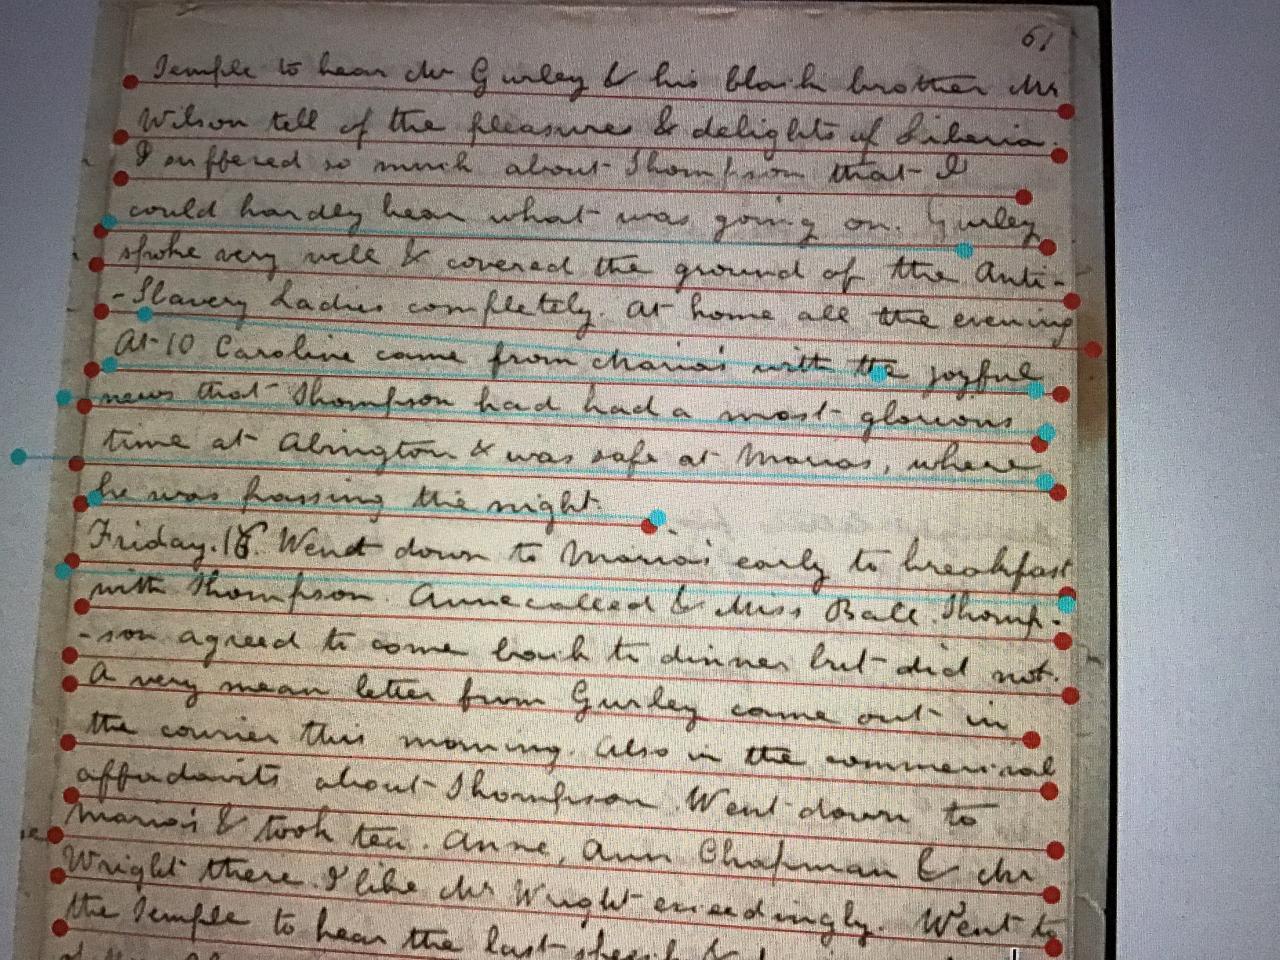 61
Temple to hear Mr Gurley & his black brother Mr
Wilson tell of the pleasures & delights of Liberia.
I suffered so much about Thompson that I
could hardly hear what was going on. Gurley
spoke very well & covered the ground of the Anti-
-Slavery Ladies completely. At home all the evening
At 10 Caroline came from Maria's with the joyful
news that Thompson had had a most glorious
time at Abington & was safe at Marias, where
he was passing the night.
Friday. Went down to Maria's early to breakfast
with Thompson. Anne called & Miss Ball. Thomp-
-son agreed to come back to dinner but did not.
A very mean letter from Gurley came out in
the courier this morning. Also in the commercial
affadavits about Thompson. Went down to
Maria's & took tea. Anne, Ann Chapman & Mr
Wright there. I like Mr Wright exceedingly. Went to
the Temple to hear the last speech &